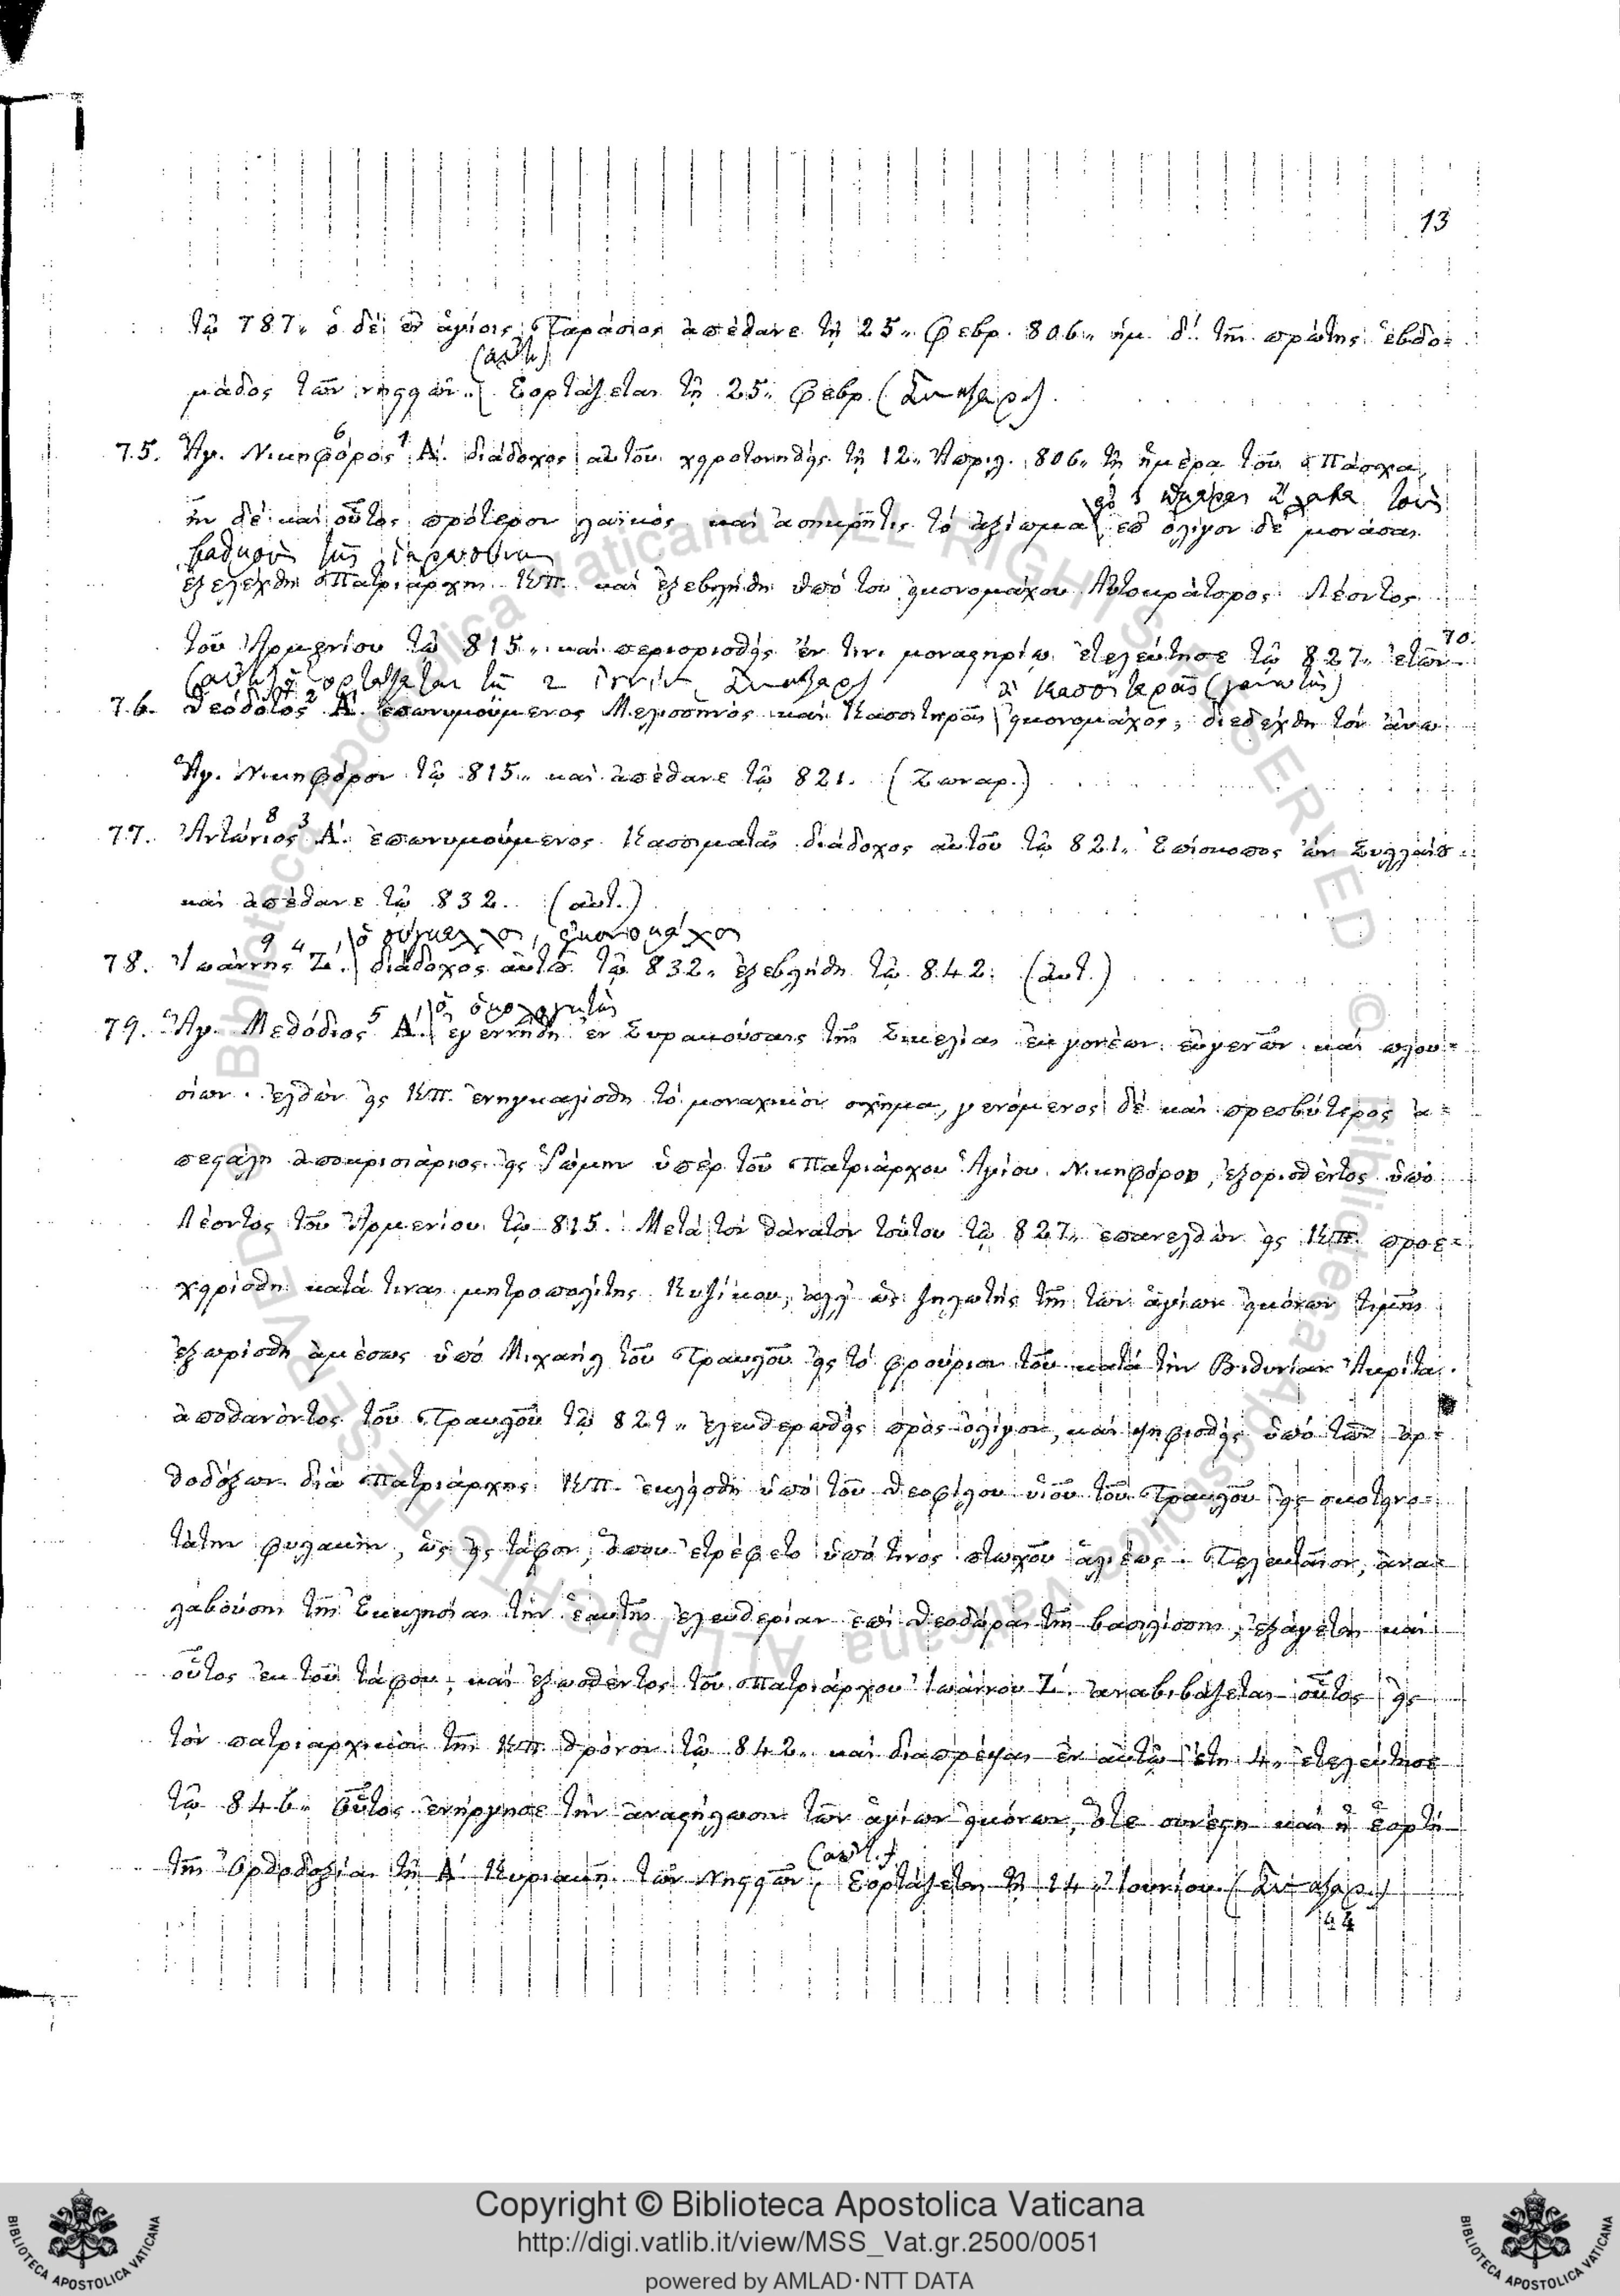 13
τῷ 787„ ὁ δὲ ἐν ἁγίοις Ταράσιος ἀπέθανε τῇ 25„ Φεβρ. 806„ ἡμ. δ΄. τῆς πρώτης ἑβδο=
(αὐτ.)
μάδος τῶν νηστειῶν. Ἑορτάζεται τῇ 25„ Φεβρ. (Συναξαρ.)
6 1
75. Ἅγ. Νικηφόρος Α΄. διάδοχος αὐτοῦ χειροτονηθεὶς τῇ 12„ Ἀπριλ. 806„ τῇ ἡμέρᾳ τοῦ Πάσχα,
τοὺς
ἦν δὲ καὶ οὗτος πρότερον λαϊκὸς καὶ ἀσηκρῆτις τὸ ἀξίωμα, ἐπ' ὀλίγον δὲ μονάσας
βαθμοὺς τῆς ἱερωσύνης
ἐξελέχθη Πατριάρχης ΚΠ. καὶ ἐξεβλήθη ὑπὸ τοῦ εἰκονομάχου Αὐτοκράτορος Λέοντος
70.
τοῦ Ἀρμενίου τῷ 815„ καὶ περιορισθεὶς ἔν τινι μοναστηρίῳ ἐτελεύτησε τῷ 827„ ἐτῶν
(αὐτ.) ἑορτάζεται τῇ 2 Ἰουνίου Συναξαρ) ἢ Κασσιτερᾶς
7 2
76. Θεόδοτος Α΄. ἐπωνυμούμενος Μελισσηνὸς καὶ Κασσιτηρᾶς εἰκονομάχος, διεδέχθη τὸν ἄνω
Ἅγ. Νικηφόρον τῷ 815„ καὶ ἀπέθανε τῷ 821. (Ζωναρ.)
8 3
77. Ἀντώνιος Α΄. ἐπωνυμούμενος Κασσιματᾶς διάδοχος αὐτοῦ τῷ 821„ Ἐπίσκοπος ὢν Συλλαίου
καὶ ἀπέθανε τῷ 832. (αὐτ.)
9 4 ὁ σύγκελλος, εἰκονομάχος
78. Ἰωάννης Ζ΄. διάδοχος αὐτοῦ τῷ 832„ ἐξεβλήθη τῷ 842. (αὐτ.)
5 ὁ ὁμολογητὴς
79. Ἅγ. Μεθόδιος Α΄. ἐγεννήθη ἐν Συρακούσαις τῆς Σικελίας ἐκ γονέων εὐγενῶν καὶ πλου=
σίων. ἐλθὼν εἰς ΚΠ. ἐνηγκαλίσθη τὸ μοναχικὸν σχῆμα, γενόμενος δὲ καὶ πρεσβύτερος ἀ=
πεστάλη ἀποκρισιάριος εἰς Ῥώμην ὑπὲρ τοῦ Πατριάρχου Ἁγίου Νικηφόρου, ἐξορισθέντος ὑπὸ
Λέοντος τοῦ Ἀρμενίου τῷ 815. Μετὰ τὸν θάνατον τούτου τῷ 827„ ἐπανελθὼν εἰς ΚΠ. προε=
χειρίσθη κατά τινας μητροπολίτης Κυζίκου, ἀλλ' ὡς ζηλωτὴς τῆς τῶν ἁγίων εἰκόνων τιμῆς
ἐξωρίσθη ἀμέσως ὑπὸ Μιχαὴλ τοῦ Τραυλοῦ εἰς τὸ φρούριον τοῦ κατὰ τὴν Βιθυνίαν Ἀκρίτα.
ἀποθανόντος τοῦ Τραυλοῦ τῷ 829„ ἐλευθερωθεὶς πρὸς ὀλίγον, καὶ ψηφισθεὶς ὑπὸ τῶν ὀρ=
θοδόξων διὰ Πατριάρχης ΚΠ. ἐκλείσθη ὑπὸ τοῦ Θεοφίλου υἱοῦ τοῦ Τραυλοῦ εἰς σκοτεινο=
τάτην φυλακὴν, ὡς εἰς τάφον, ὅπου ἐτρέφετο ὑπό τινος πτωχοῦ ἁλιέως. Τελευταῖον, ἀνα=
λαβούσης τῆς Ἐκκλησίας τὴν ἑαυτῆς ἐλευθερίαν ἐπὶ Θεοδώρας τῆς βασιλίσσης, ἐξάγεται καὶ
οὗτος ἐκ τοῦ τάφου, καὶ ἐξωσθέντος τοῦ Πατριάρχου Ἰωάννου Ζ΄. ἀναβιβάζεται οὗτος εἰς
τὸν πατριαρχικὸν τῆς ΚΠ. θρόνον τῷ 842„ καὶ διαπρέψας ἐν αὐτῷ ἔτη 4„ ἐτελεύτησε
τῷ 846„ Οὗτος ἐνήργησε τὴν ἀναστήλωσιν τῶν ἁγίων εἰκόνων, ὅτε συνέστη καὶ ἡ ἑορτὴ
(αὐτ.)
τῆς Ὀρθοδοξίας τῇ Α΄ Κυριακῇ τῶν Νηστειῶν, Ἑορτάζεται τῇ 14„ Ἰουνίου. (Συναξαρ.)
Copyright © Biblioteca Apostolica Vaticana
http://digi.vatlib.it/view/MSS_Vat.gr.2500/0051
powered by AMLAD·NTT DATA